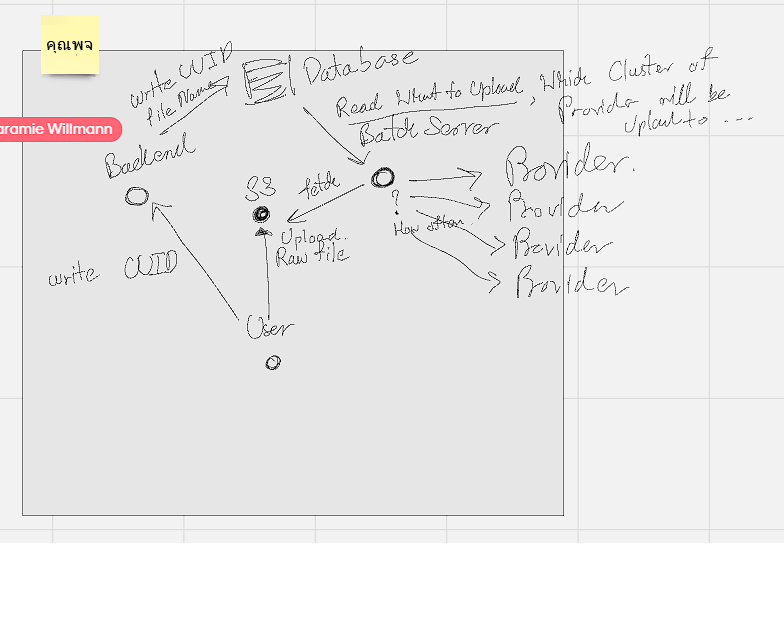 คุณพจ
aramie Willmann
write CUID
file Name
Database
Read What to Upload, Which Cluster of
Provider will be
Upload to ...
Batch Server
Backend
S3
fetch
?
How often
Upload
Raw file
write CUID
User
Provider.
Provider
Provider
Provider